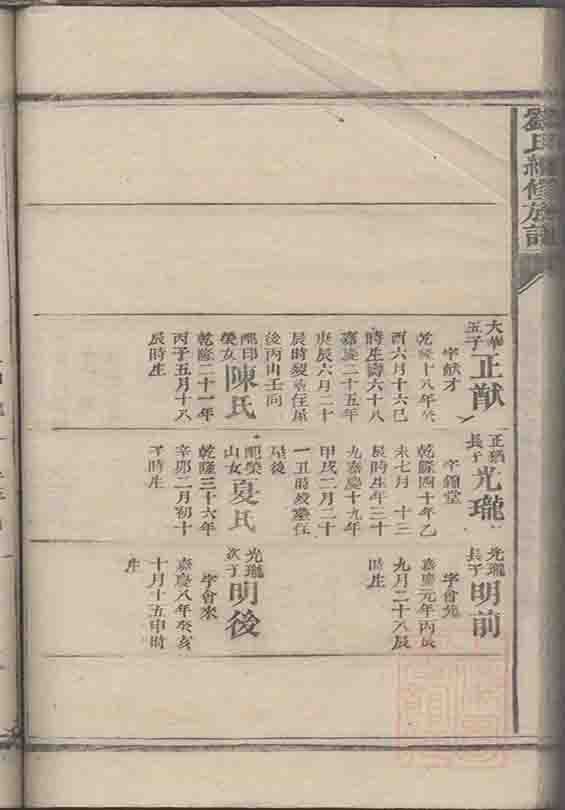 劉氏續修族譜
大華
五子
正猷
字獻才
乾隆十八年癸
酉六月十六巳
時生壽六十八
嘉慶二十五年
庚辰六月二十
辰時殁塟住屋
後丙山壬向
配印
榮女
陳氏
乾隆二十一年
丙子五月十八
辰時生
正猷
長子
光瓏
字鏡堂
乾隆四十年乙
未七月十三
辰時生年三十
九嘉慶十九年
甲戌二月二十
一丑時殁塟住
屋後
配榮
山女
夏氏
乾隆三十六年
辛卯二月初十
子時生
光瓏
長子
明前
嘉慶元年丙辰
九月二十八辰
時生
光瓏
次子
明後
字會來
嘉慶八年癸亥
十月十五申時
生